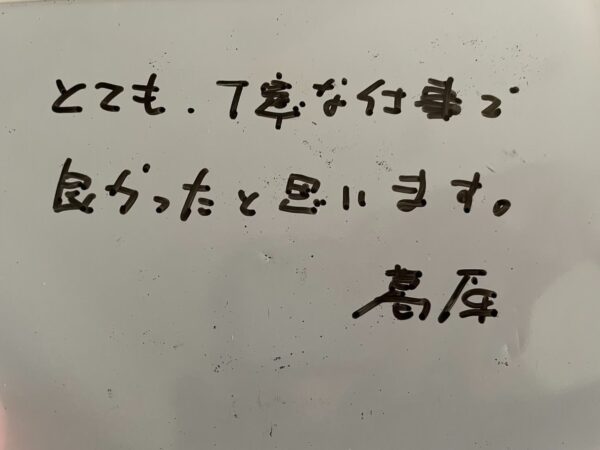 とても、丁寧な仕事で
良かったと思います。
高原